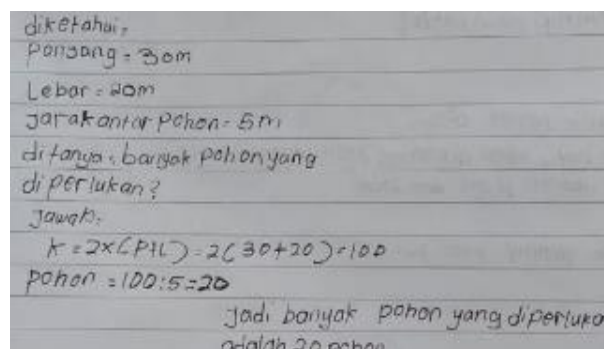 diketahui:
Panjang = 30m
Lebar = 20m
Jarak antar Pohon = 5m
ditanya: banyak pohon yang
diperlukan?
Jawab:
K = 2x(P+L) = 2(30+20) = 100
pohon = 100:5=20
Jadi banyak pohon yang diperluka
adalah 20 pohon